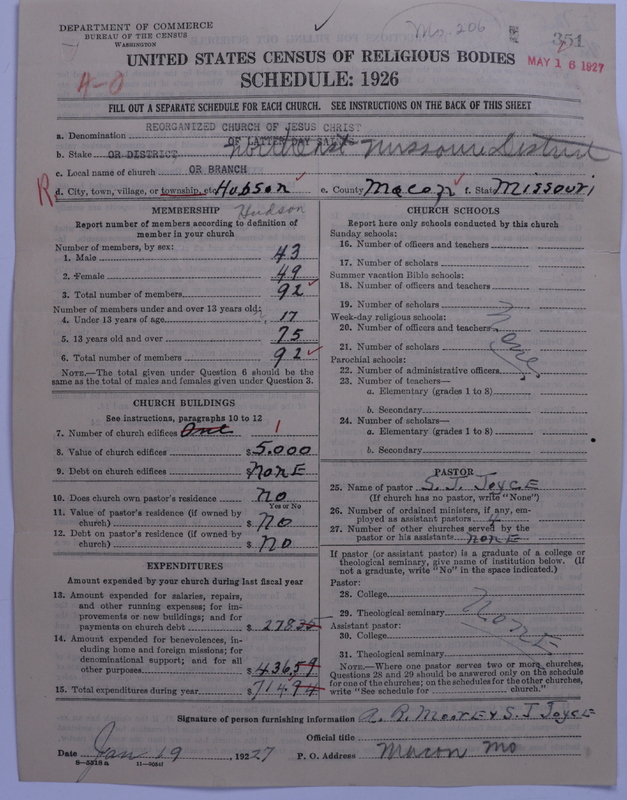 DEPARTMENT OF COMMERCE
BUREAU OF THE CENSUS
WASHINGTON
Mo. 206
351
MAY 16 1927
UNITED STATES CENSUS OF RELIGIOUS BODIES
SCHEDULE: 1926
FILL OUT A SEPARATE SCHEDULE FOR EACH CHURCH. SEE INSTRUCTIONS ON THE BACK OF THIS SHEET
a. Denomination REORGANIZED CHURCH OF JESUS CHRIST
OF LATTER DAY SAINTS
b. Stake OR DISTRICT Northeast Missouri District
c. Local name of church OR BRANCH
R d. City, town, village, or township, etc. Hubson e. County Macon f. State Missouri
Hudson
MEMBERSHIP
Report number of members according to definition of
member in your church
Number of members, by sex:
1. Male 43
2. Female 49
3. Total number of members 92
Number of members under and over 13 years old:
4. Under 13 years of age 17
5. 13 years old and over 75
6. Total number of members 92
NOTE.—The total given under Question 6 should be the
same as the total of males and females given under Question 3.
CHURCH BUILDINGS
See instructions, paragraphs 10 to 12
7. Number of church edifices One 1
8. Value of church edifices $5.000
9. Debt on church edifices $NONE
10. Does church own pastor's residence NO
Yes or No
11. Value of pastor's residence (if owned by
church) $ NO
12. Debt on pastor's residence (if owned by
church) $ NO
EXPENDITURES
Amount expended by your church during last fiscal year
13. Amount expended for salaries, repairs,
and other running expenses; for im-
provements or new buildings; and for
payments on church debt $ 278
14. Amount expended for benevolences, in-
cluding home and foreign missions; for
denominational support; and for all
other purposes $ 436.59
15. Total expenditures during year $ 714.94
CHURCH SCHOOLS
Report here only schools conducted by this church
Sunday schools:
16. Number of officers and teachers
17. Number of scholars
Summer vacation Bible schools:
18. Number of officers and teachers
19. Number of scholars
Week-day religious schools:
20. Number of officers and teachers
21. Number of scholars
None
Parochial schools:
22. Number of administrative officers
23. Number of teachers—
a. Elementary (grades 1 to 8)
b. Secondary
24. Number of scholars—
a. Elementary (grades 1 to 8)
b. Secondary
PASTOR
25. Name of pastor S. J. JOYCE
(If church has no pastor, write "None")
26. Number of ordained ministers, if any, em-
ployed as assistant pastors 4
27. Number of other churches served by the
pastor or his assistants NONE
If pastor (or assistant pastor) is a graduate of a college or
theological seminary, give name of institution below. (If
not a graduate, write "No" in the space indicated.)
Pastor:
28. College
29. Theological seminary
NONE
Assistant pastor:
30. College
31. Theological seminary
NOTE.—Where one pastor serves two or more churches,
Questions 28 and 29 should be answered only on the schedule
for one of the churches; on the schedules for the other churches,
write "See schedule for church."
Signature of person furnishing information S J JOYCE
Official title
Date Jan 19 , 1927 P. O. Address Macon Mo